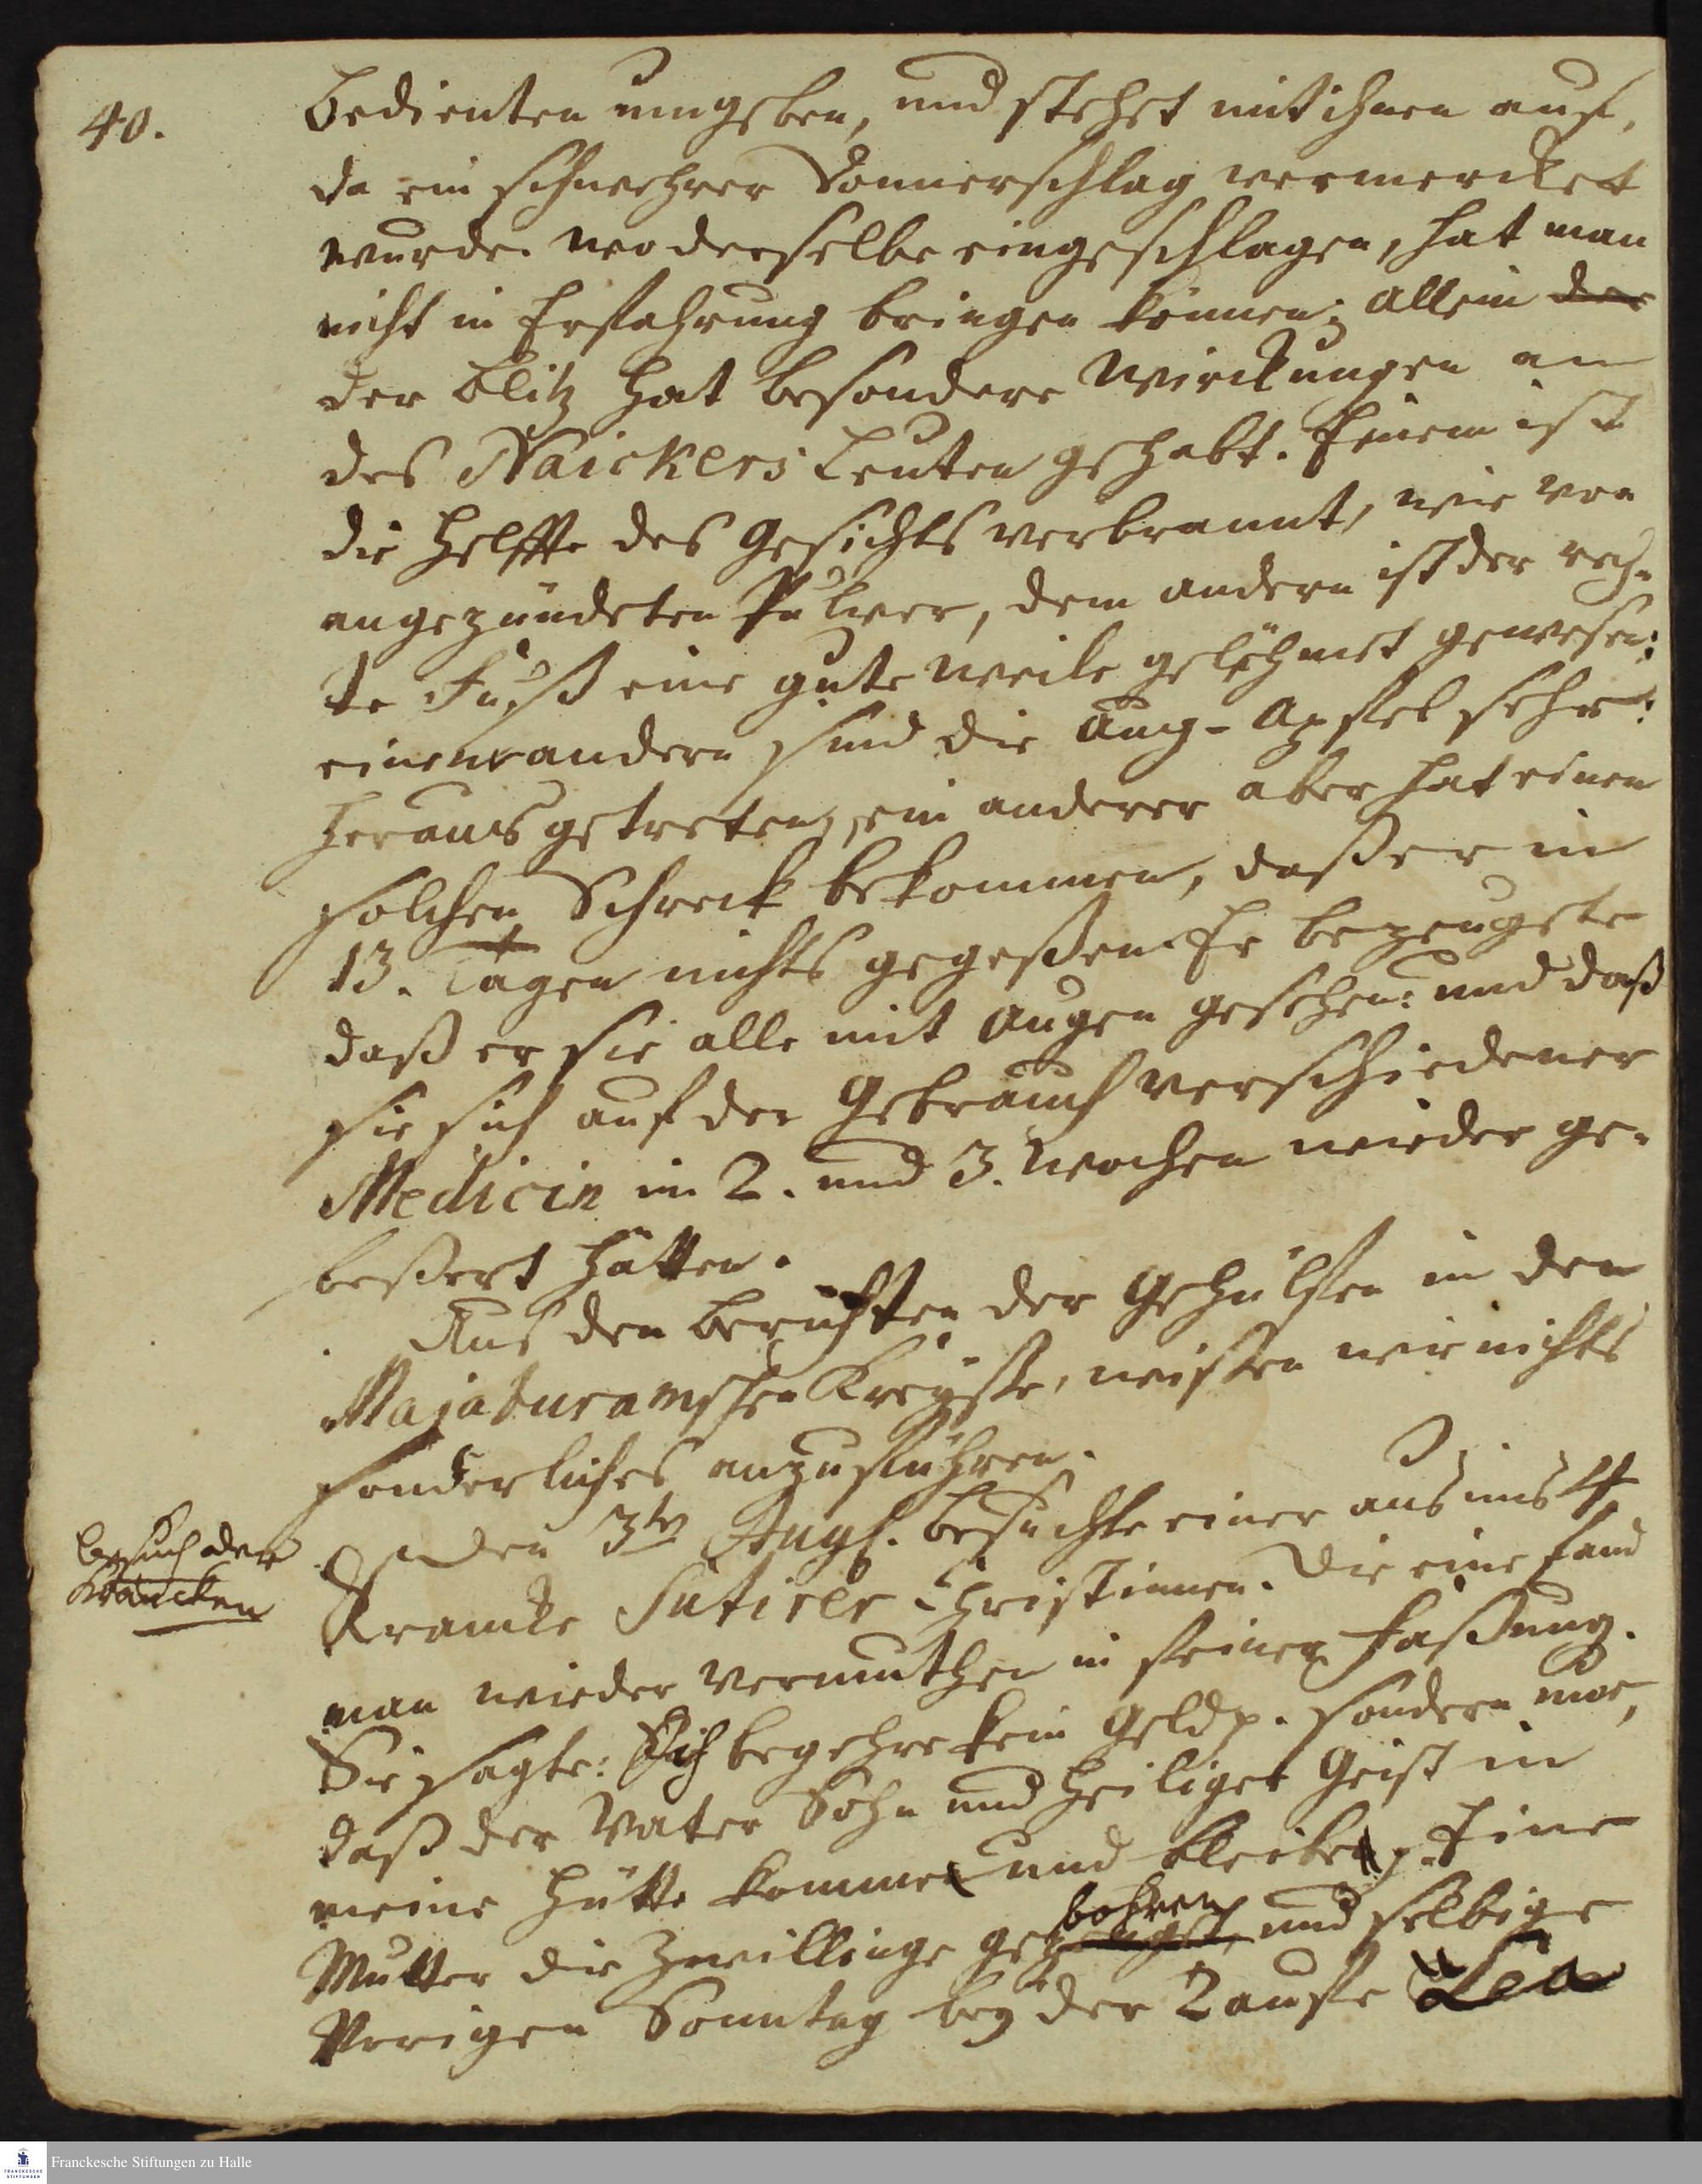 40.
Bedienten umgeben, und stehet mit ihnen auf,
da ein schwehrer Donnerschlag vermercket
wurde. wo derselbe eingeschlagen, hat man
nicht in Erfahrung bringen können; allein der
der Blitz hat besondere Wirckungen an
des Naickers Leuten gehabt. Einem ist
die Helffte des Gesichts verbrannt, wie von
angezündeten Pulver, dem andern ist der rech-
te Fuß eine gute Weile gelähmet gewesen;
einem andern sind die Aug-Apfel sehr
heraus getreten; ein anderer aber hat einen
solchen Schreck bekommen, daß er in
13. Tagen nichts gegeßen. Er bezeugete
daß er sie alle mit Augen gesehen: und daß
sie sich auf den Gebrauch verschiedener
Medicin in 2. und 3. Wochen wieder ge-
beßert hätten.
Aus den Berichten der Gehülfen in den
Majaburamschen Kreyße, wißen wir nichts
sonderliches anzuführen.
Besuch der
Krancken
Den 3ten Aug. besuchte einer aus uns 4
Krancke Sutirer Christinnen. Die eine fand
man wieder vermuthen in feiner Faßung.
Sie sagte: Ich begehre kein Geld p. sondern nur,
daß der Vater Sohn und Heiliger Geist in
meine Hütte komme und bleibe p. Eine
Mutter die Zwillinge gebohren und selbige
Vorigen Sonntag bey der Tauffe Lea